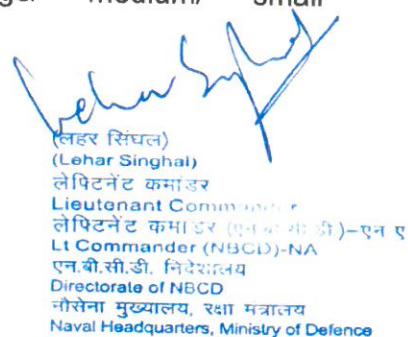 medium/ small
Lehar Singhal
(लहर सिंघल)
(Lehar Singhal)
लेफ्टिनेंट कमांडर
Lieutenant Commander
लेफ्टिनेंट कमांडर (एन.बी.सी.डी.)-एन ए
Lt Commander (NBCD)-NA
एन.बी.सी.डी. निदेशालय
Directorate of NBCD
नौसेना मुख्यालय, रक्षा मंत्रालय
Naval Headquarters, Ministry of Defence